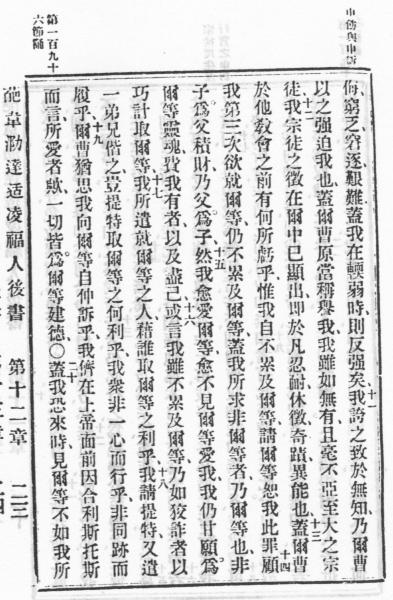 侮、窮乏、窘逐、艱難、蓋我在輭弱時、則反强矣、十一我誇之致於無知、乃爾曹
以之强迫我也、蓋爾曹原當稱譽我、我雖如無有、且毫不亞至大之宗
徒、十二我宗徒之徵、在爾中已顯出、即於凡忍耐休徵奇蹟異能也、十三蓋爾曹
於他敎會之前、有何所虧乎、惟我自不累及爾等、請爾等恕我此罪、十四顧
我第三次欲就爾等、仍不累及爾等、蓋我所求非爾等者、乃爾等也、非
子爲父積財、乃父爲子、十五然我愈愛爾等、愈不見爾等愛我、我仍甘願爲
爾等靈魂費我有者、以及盡己、十六或言我雖不累及爾等、乃如狡詐者、以
巧計取爾等、十七我所遣就爾等之人、藉誰取爾等之利乎、十八我請提特、又遣
一弟兄偕之、豈提特取爾等之何利乎、我衆非一心而行乎、非同跡而
履乎、十九爾曹猶思我向爾等自伸訴乎、我儕在上帝面前因合利斯托斯
而言、所愛者歟、一切皆爲爾等建德、〇二十蓋我恐來時、見爾等不如我所
第一百九十
六節隨
適凌福人後書 第十二章 二三